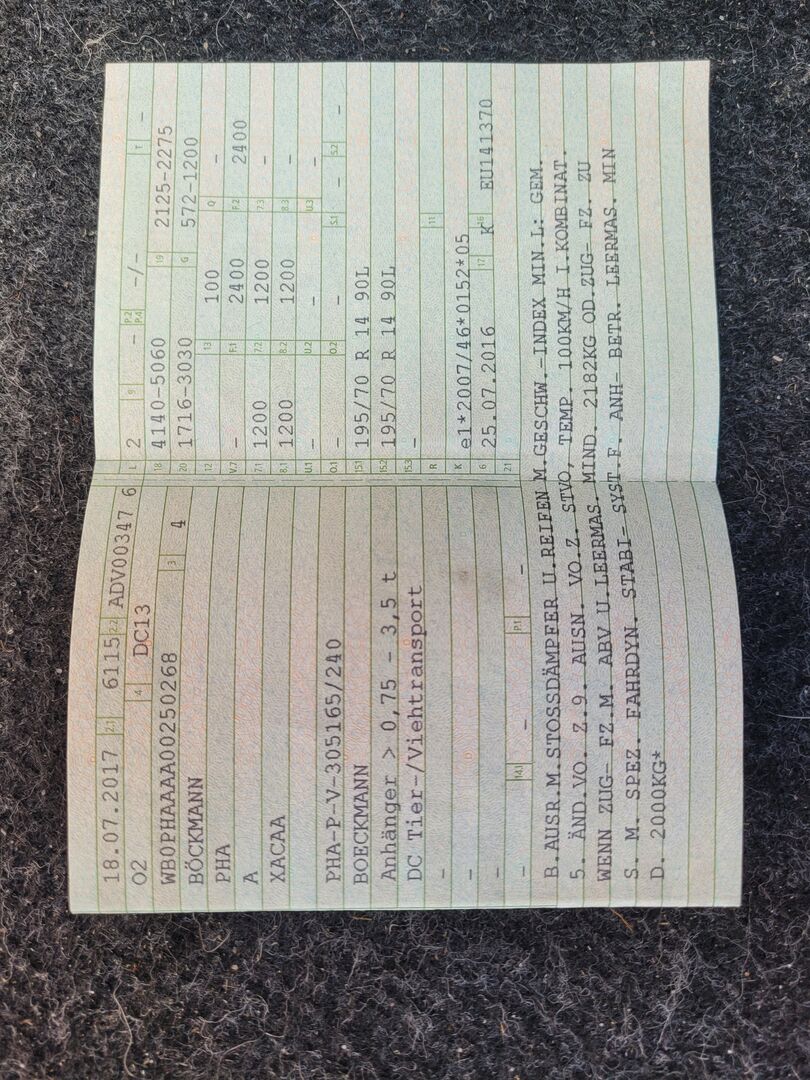 18.07.2017 2.1 6115 2.2 ADV00347 6
O2 4 DC13
WB0PHAAAA00250268 3 4
BÖCKMANN
PHA
A
XACAA
PHA-P-V-305165/240
BOECKMANN
Anhänger > 0,75 - 3,5 t
DC Tier-/Viehtransport
-
-
-
- 14.1 - P.1 -
L 2 9 - P.2 P.4 -/- T -
18 4140-5060 19 2125-2275
20 1716-3030 G 572-1200
12 13 100 Q -
V.7 - F.1 2400 F.2 2400
7.1 1200 7.2 1200 7.3 -
8.1 1200 8.2 1200 8.3 -
U.1 - U.2 - U.3 -
O.1 - O.2 - S.1 - S.2 -
15.1 195/70 R 14 90L
15.2 195/70 R 14 90L
15.3 -
R 11
K e1*2007/46*0152*05
6 25.07.2016 17 K 16 EU141370
21
B.AUSR.M.STOSSDÄMPFER U.REIFEN M.GESCHW.-INDEX MIN.L: GEM.
5. ÄND.VO. Z.9. AUSN. VO.Z. STVO, TEMP. 100KM/H I.KOMBINAT.
WENN ZUG- FZ.M. ABV U.LEERMAS. MIND. 2182KG OD.ZUG- FZ. ZU
S. M. SPEZ. FAHRDYN. STABI- SYST.F. ANH- BETR. LEERMAS. MIN
D. 2000KG*